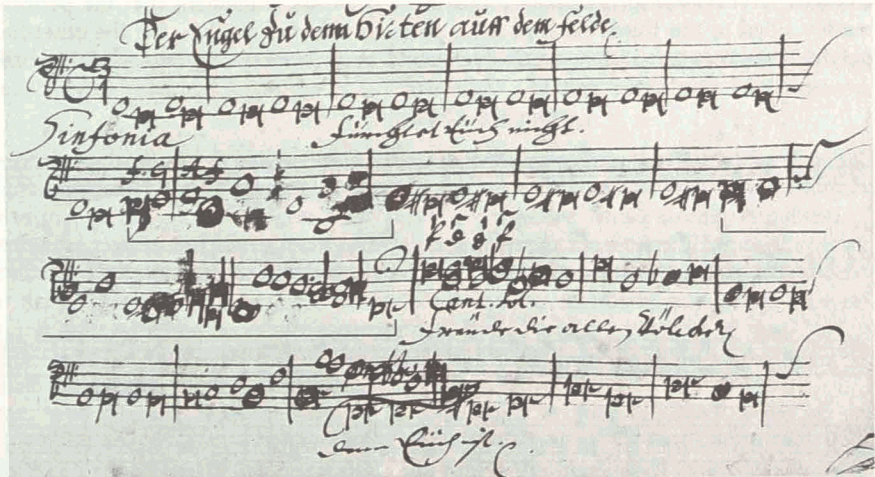 Der Engel zu denn Hirten auff dem felde.
Sinfonia Fürchtet Euch nicht.
Cant. sol.
Freude die allen Völcker
denn Euch ist.